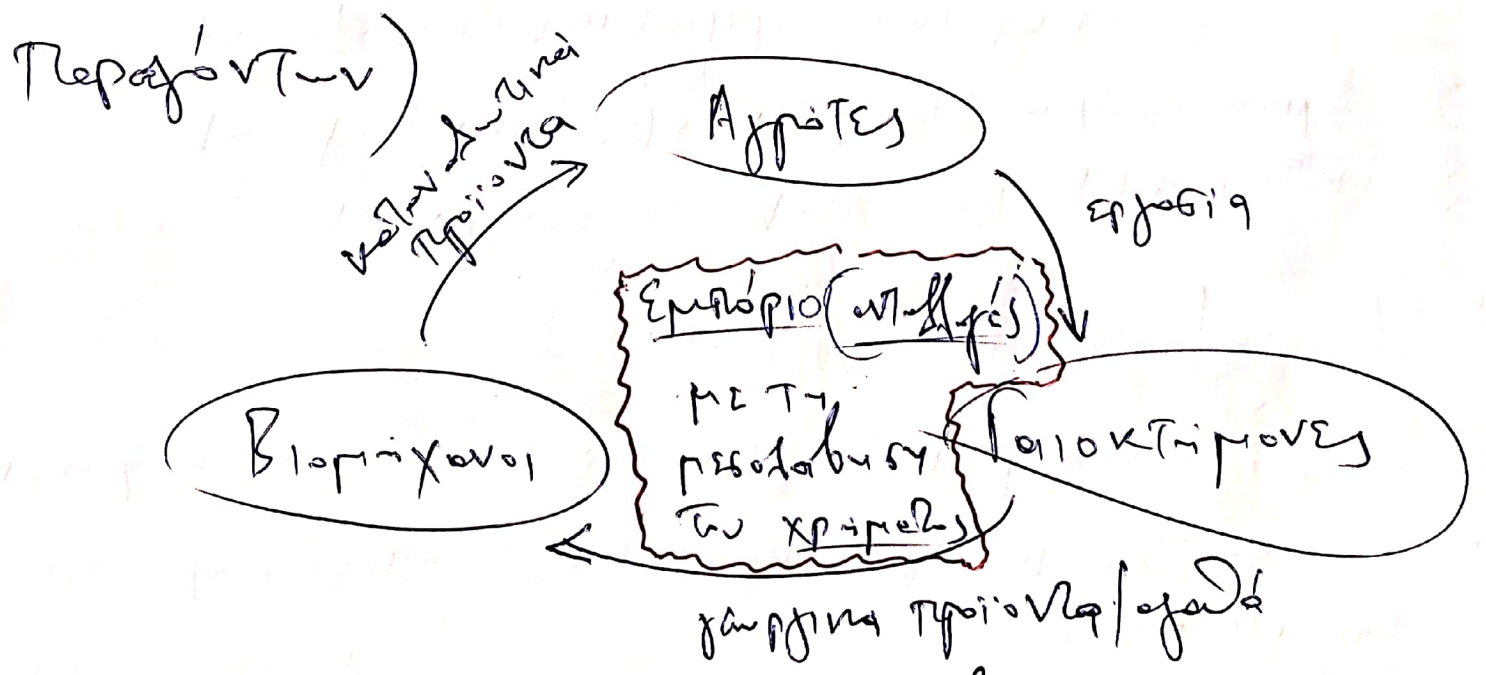 Παραγόντων)
καταναλωτικά
προϊόντα
Αγρότες
εργασία
Εμπόριο (ανταλλαγές)
με τη
μεσολάβηση
του χρήματος
Βιομήχανοι
Γαιοκτήμονες
γεωργικα προϊοντα/αγαθά